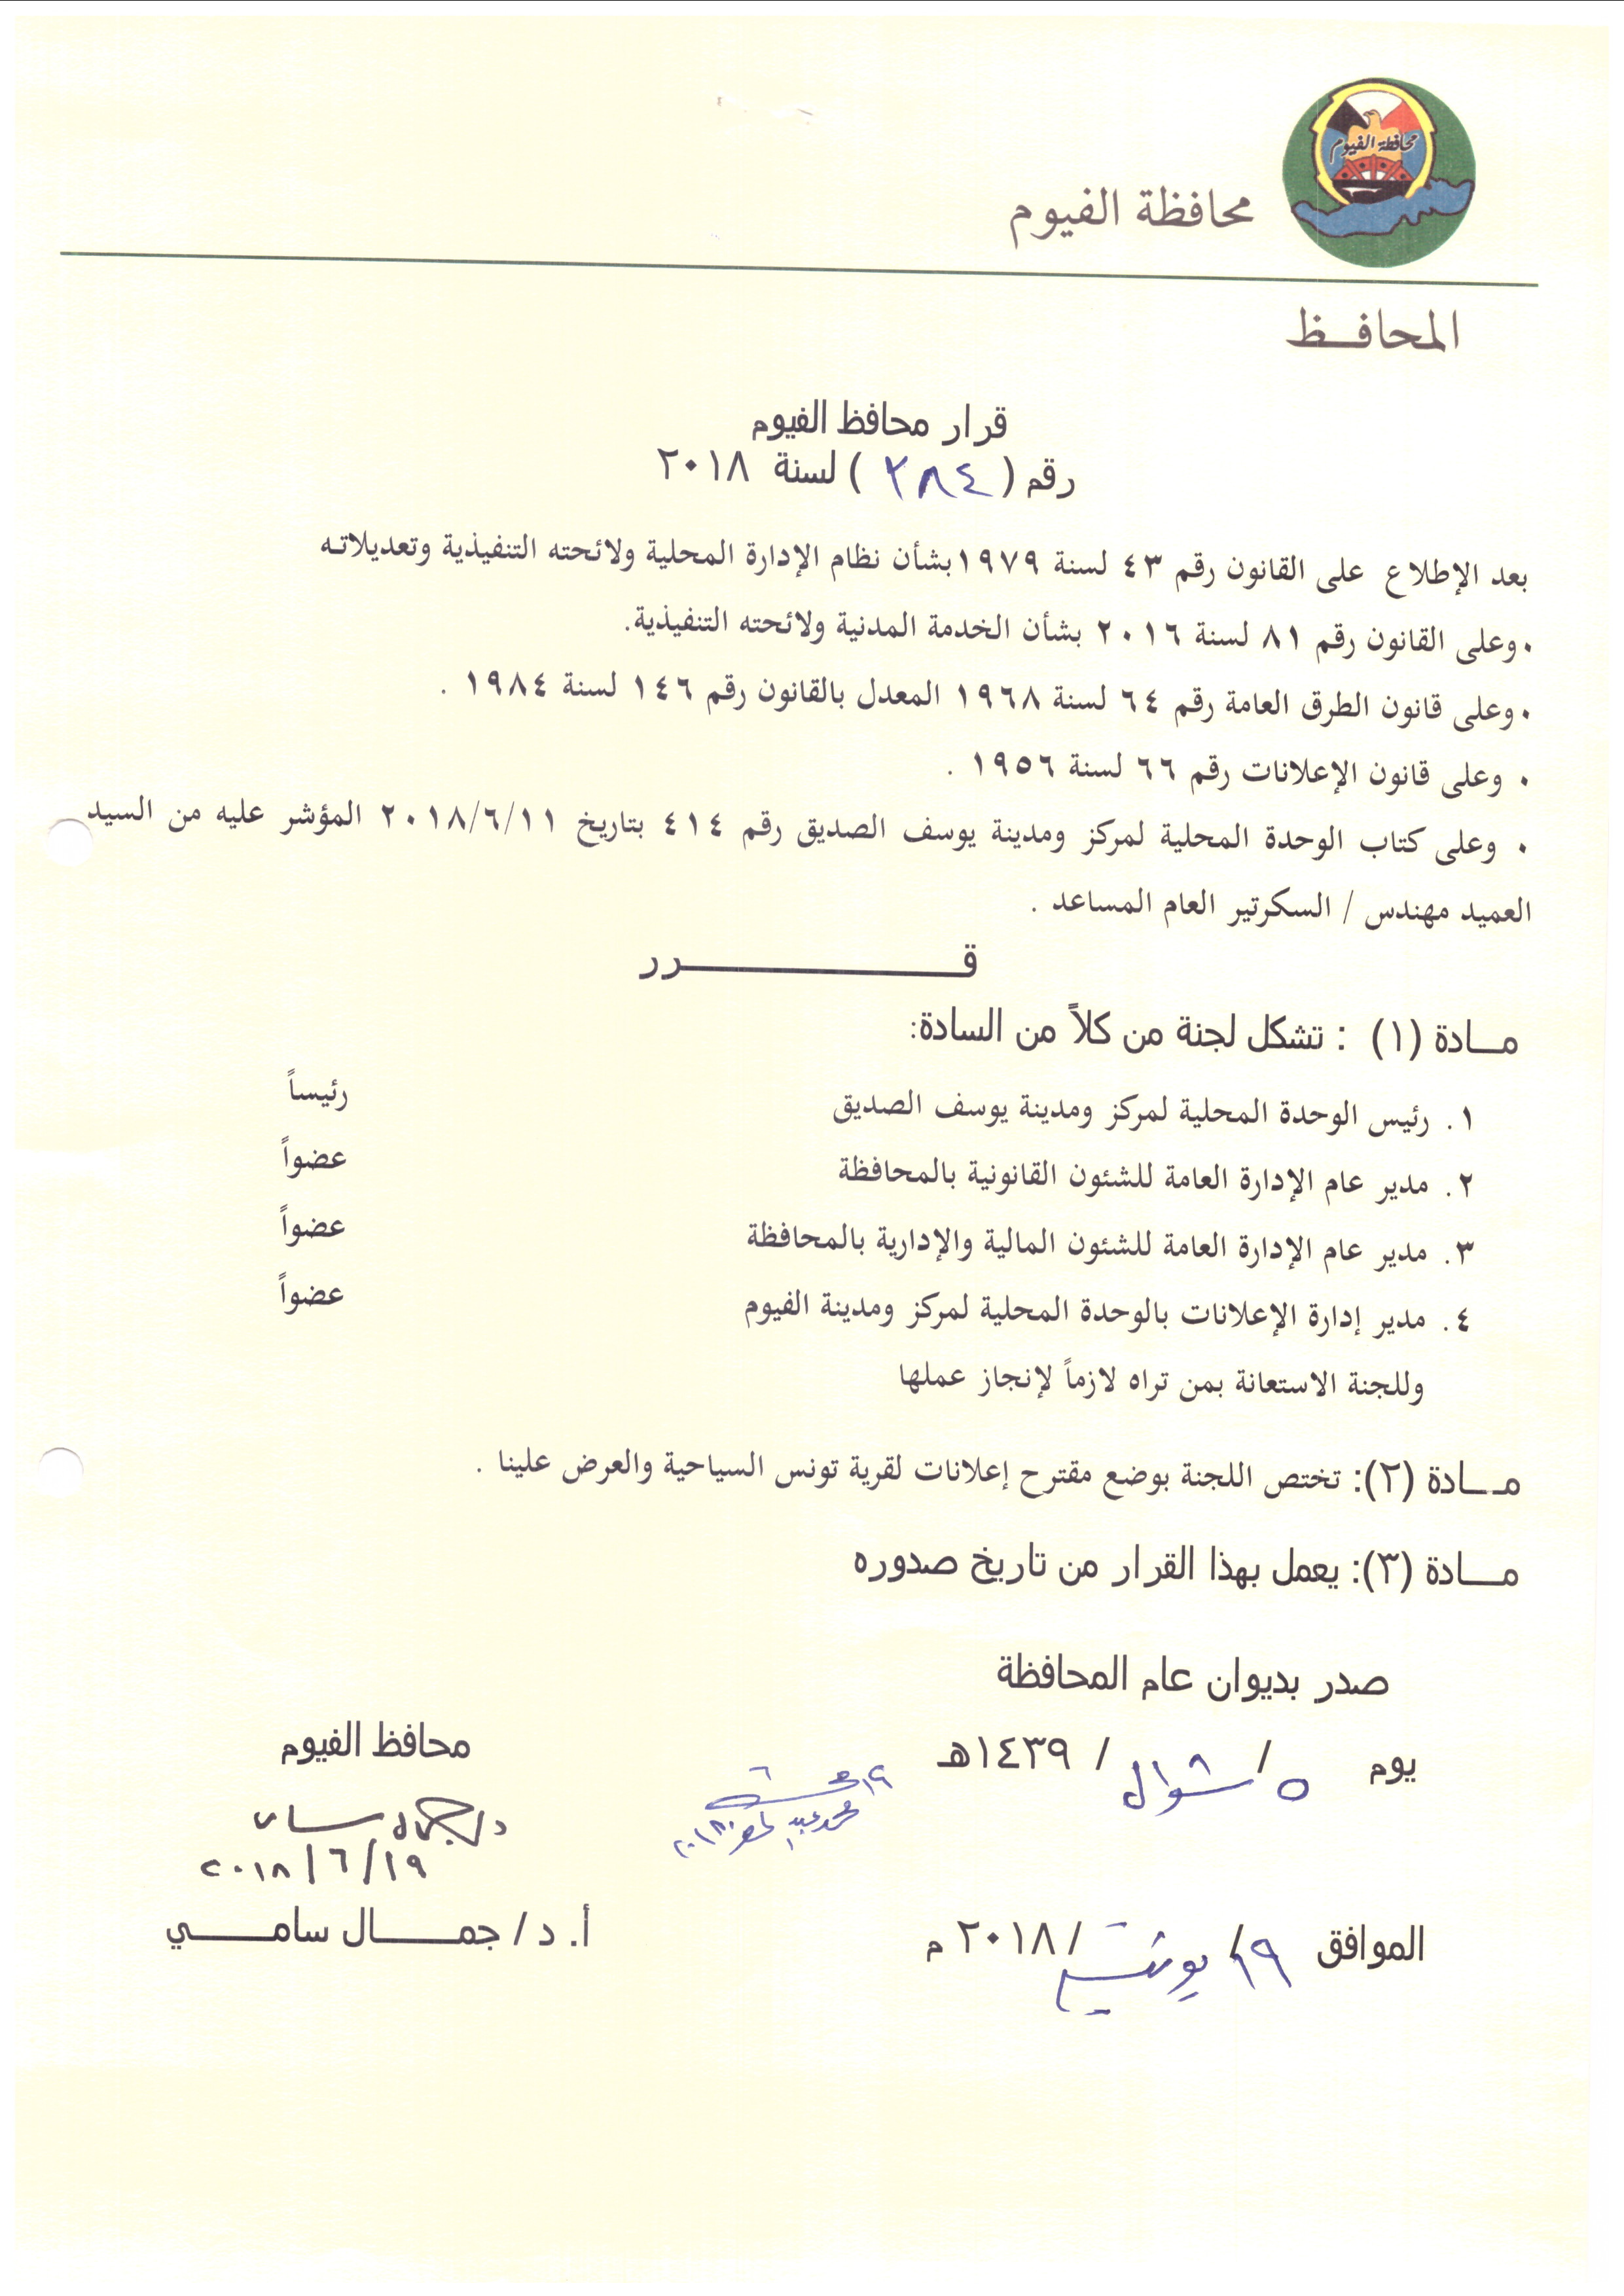 محافظة الفيوم
محافظة الفيوم
المحافـــظ
قرار محافظ الفيوم
رقم ( ٢٨٤ ) لسنة ٢٠١٨
بعد الإطلاع على القانون رقم ٤٣ لسنة ١٩٧٩بشأن نظام الإدارة المحلية ولائحته التنفيذية وتعديلاته
٠وعلى القانون رقم ٨١ لسنة ٢٠١٦ بشأن الخدمة المدنية ولائحته التنفيذية.
٠وعلى قانون الطرق العامة رقم ٦٤ لسنة ١٩٦٨ المعدل بالقانون رقم ١٤٦ لسنة ١٩٨٤ .
٠ وعلى قانون الإعلانات رقم ٦٦ لسنة ١٩٥٦ .
٠ وعلى كتاب الوحدة المحلية لمركز ومدينة يوسف الصديق رقم ٤١٤ بتاريخ ٢٠١٨/٦/١١ المؤشر عليه من السيد
العميد مهندس / السكرتير العام المساعد .
قـــــــــــرر
مـــادة (١) : تشكل لجنة من كلاً من السادة:
١. رئيس الوحدة المحلية لمركز ومدينة يوسف الصديق رئيساً
٢. مدير عام الإدارة العامة للشئون القانونية بالمحافظة عضواً
٣. مدير عام الإدارة العامة للشئون المالية والإدارية بالمحافظة عضواً
٤. مدير إدارة الإعلانات بالوحدة المحلية لمركز ومدينة الفيوم عضواً
وللجنة الاستعانة بمن تراه لازماً لإنجاز عملها
مـــادة (٢): تختص اللجنة بوضع مقترح إعلانات لقرية تونس السياحية والعرض علينا .
مـــادة (٣): يعمل بهذا القرار من تاريخ صدوره
صدر بديوان عام المحافظة
يوم ٥ / شوال / ١٤٣٩هـ
الموافق ١٩/ يونيه / ٢٠١٨ م
محافظ الفيوم
٢٠١٨/٦/١٩
أ. د/ جمـــال سامـــي